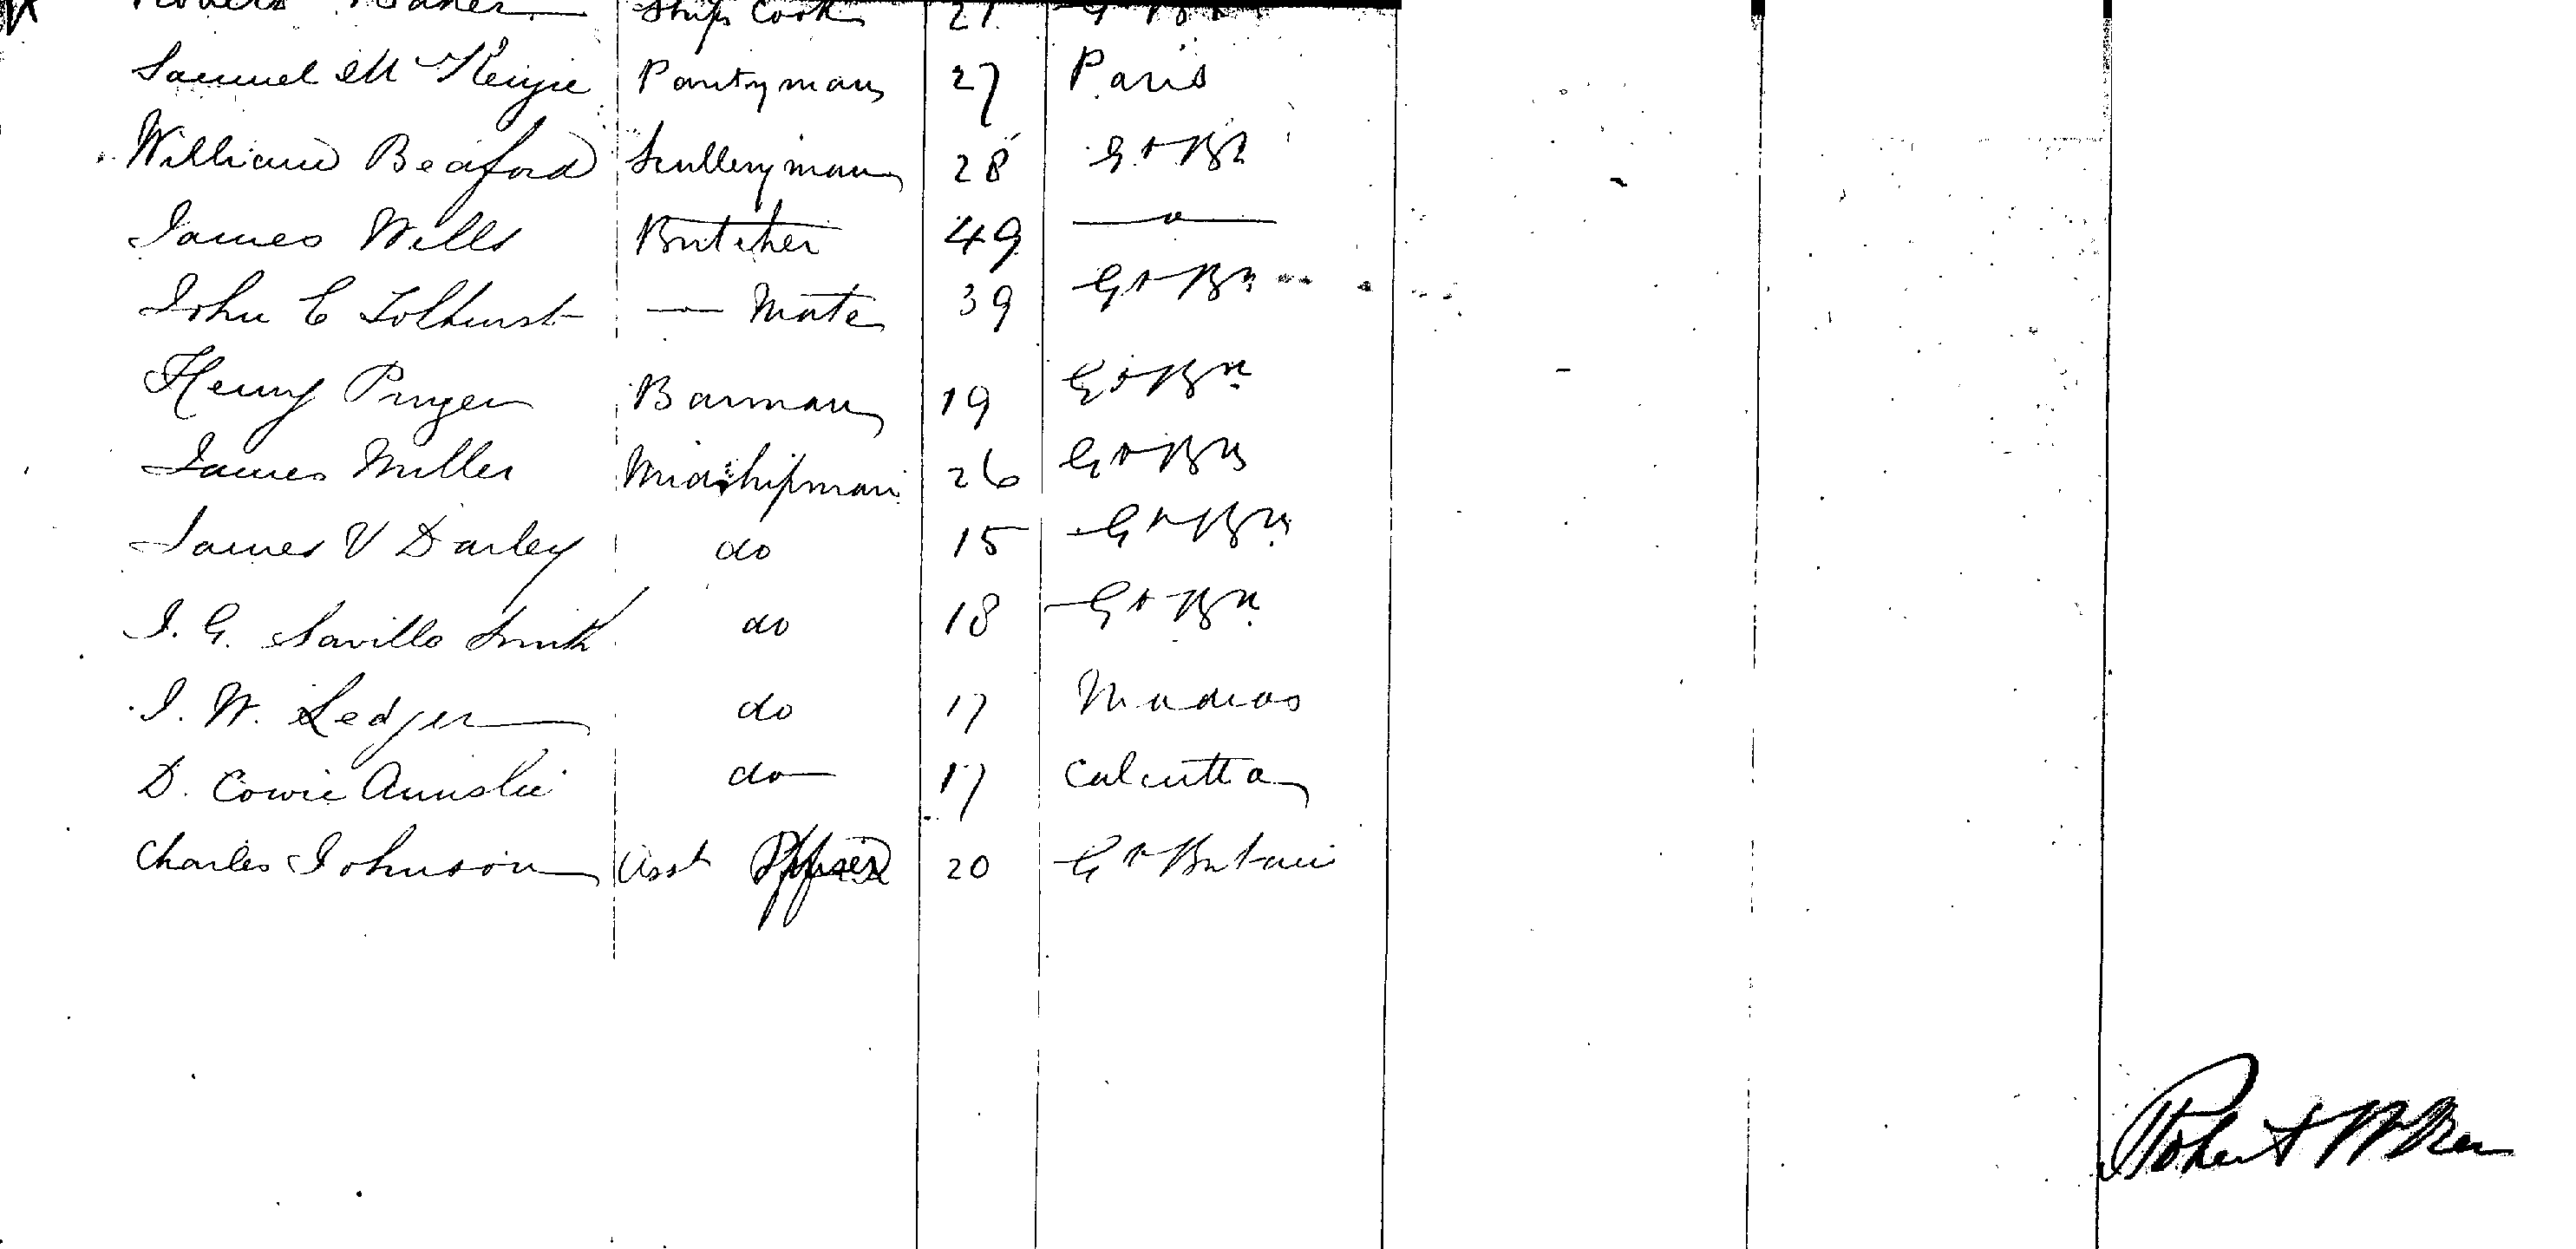 Ships Cook 21
Samuel McKenzie Pantryman 27 Paris
William Beaford Sculleryman 28 Gt Bn
James Wells Butcher 49 — " —
John C Tolhurst — Mate 39 Gt Bn
Henry Barman 19 Gt Bn
James Miller Midshipman 26 Gt Bn
James V Darley do 15 Gt Bn
J. G. Saville Smith do 18 Gt Bn
J. W. Ledger do 17 Madras
D. Cowie Ainslie do 17 Calcutta
Charles Johnson Asst Officer 20 Gt Britain
Robert W